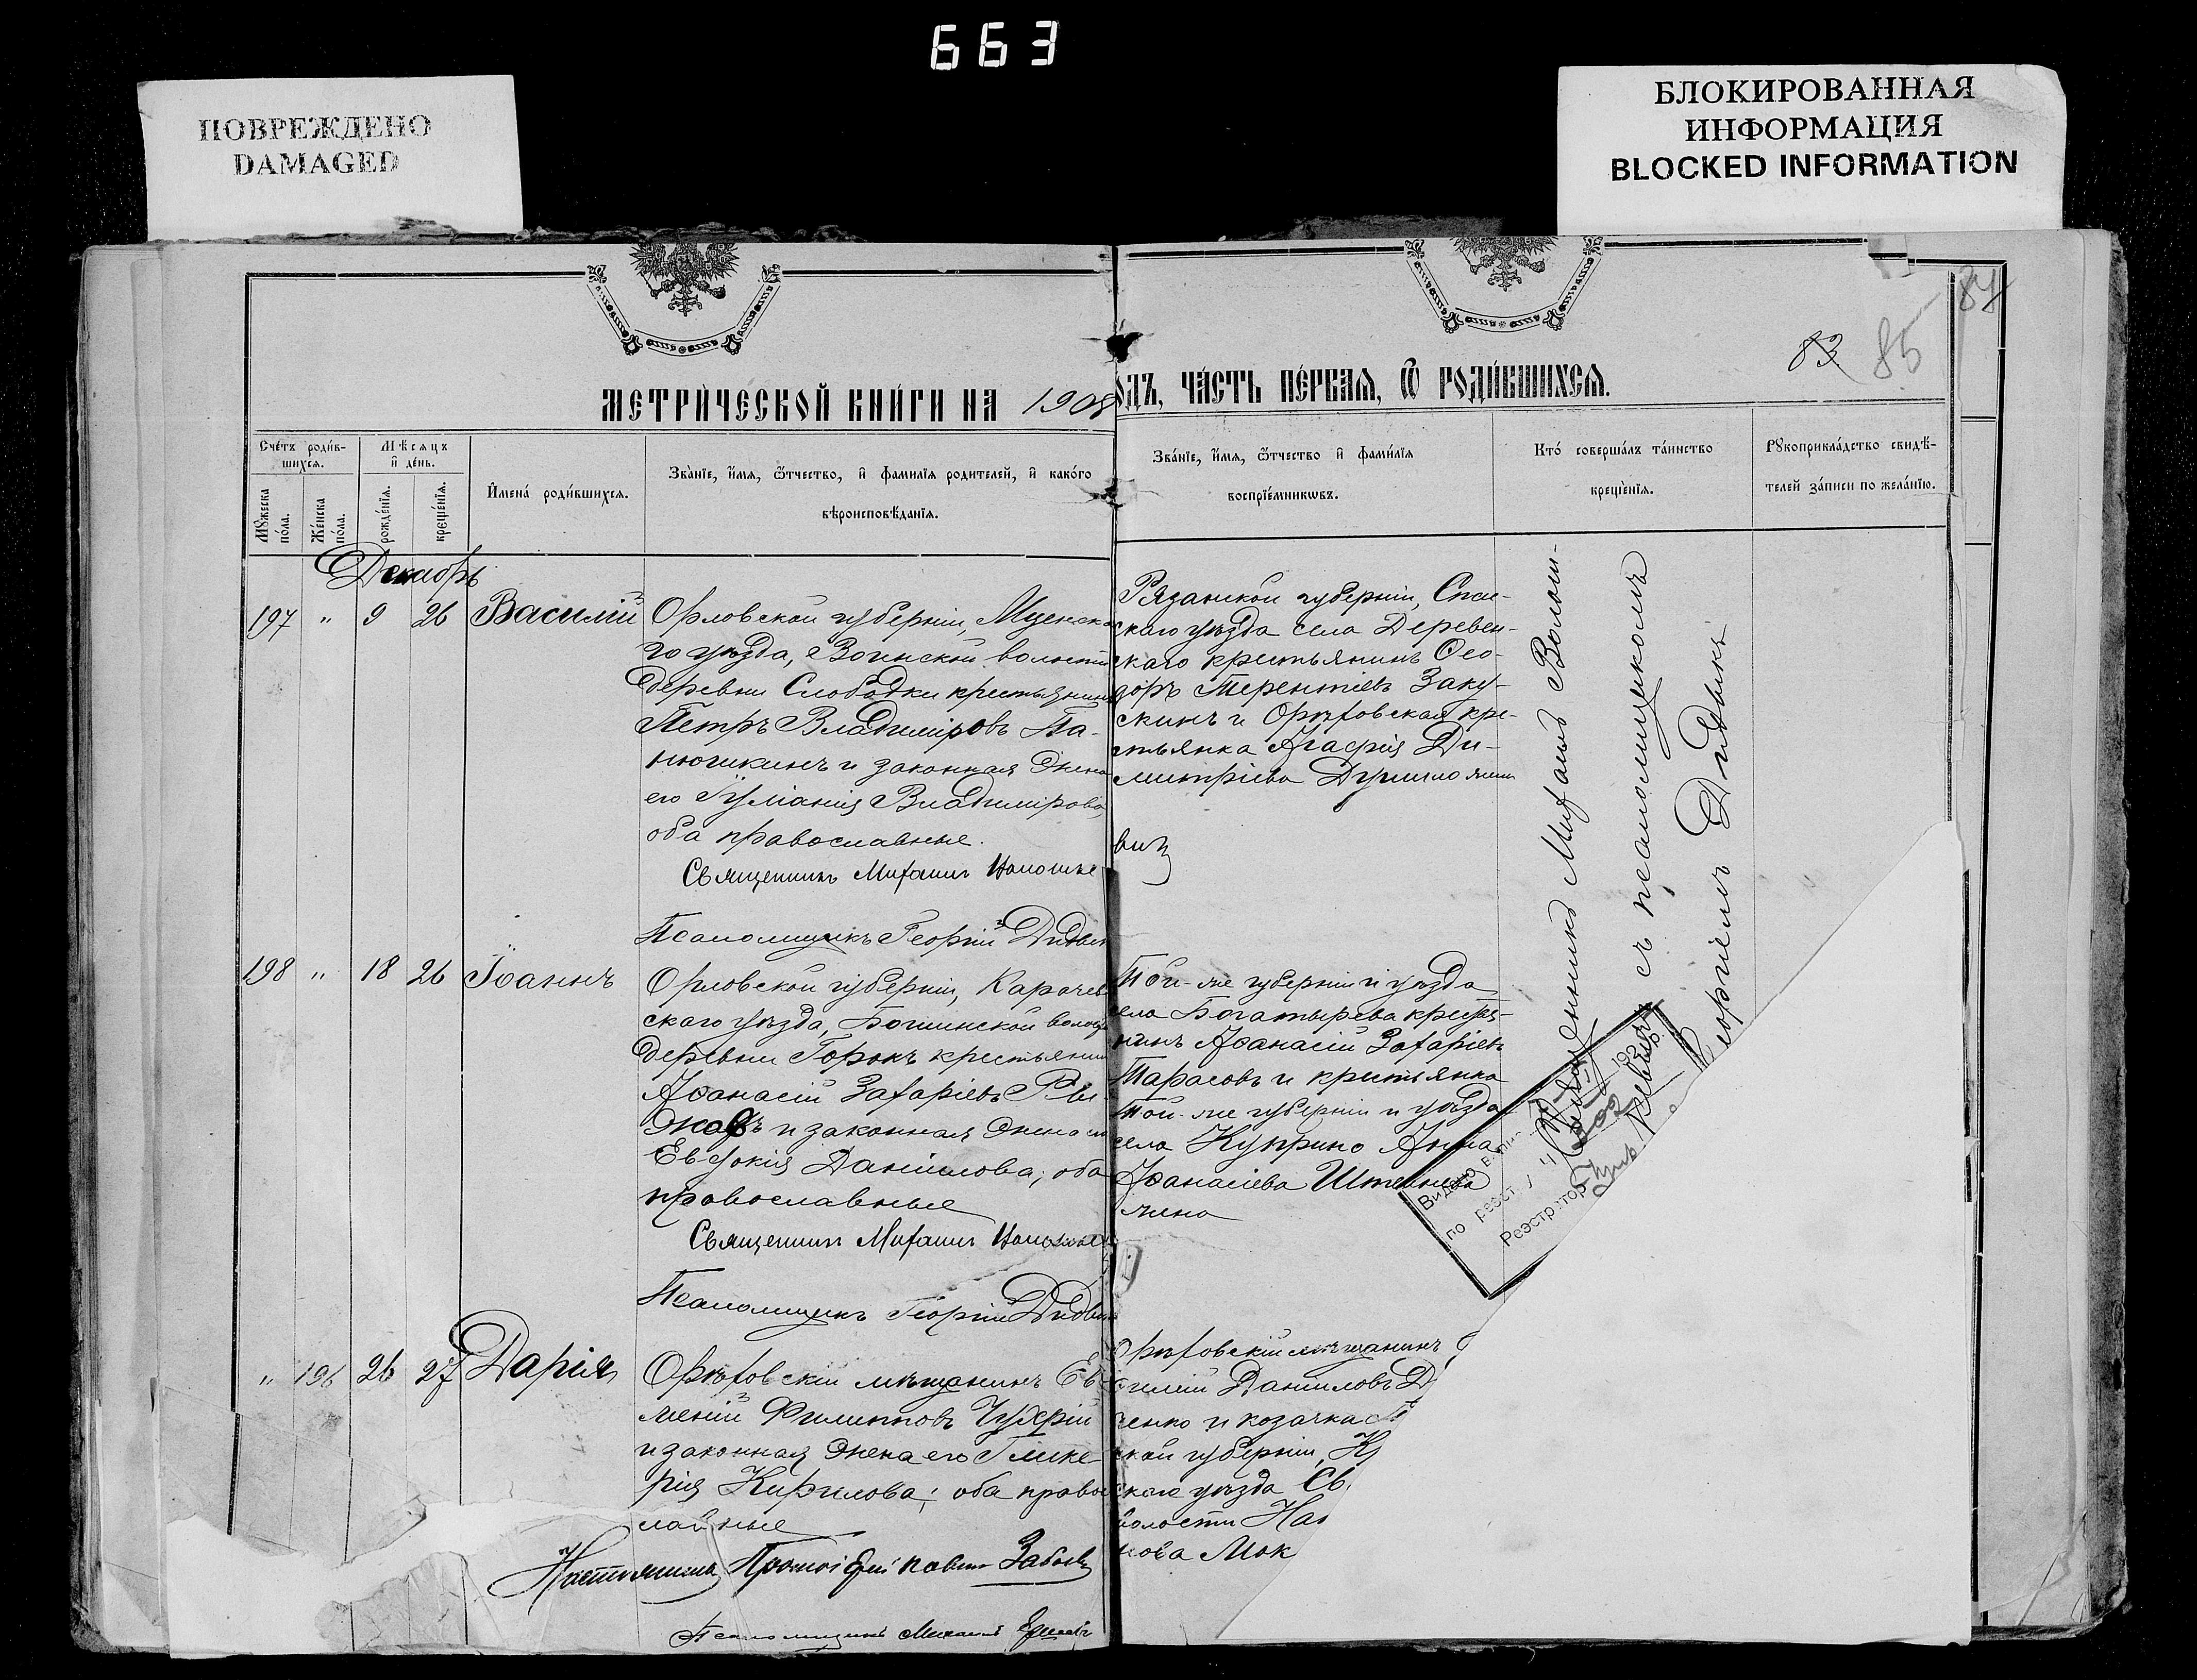 663
ПОВРЕЖДЕНО
DAMAGED
БЛОКИРОВАННАЯ
ИНФОРМАЦИЯ
BLOCKED INFORMATION
84
83 85
МЕТРИЧЕСКОЙ КНИГИ НА 1908
ОДЪ, ЧАСТЬ ПЕРВАЯ, Ѿ РОДИВШИХСЯ.
Счетъ родив-
шихся.
Мꙋжеска пола.
Женска пола.
Мѣсяцъ
и день.
рожденія.
крещенія.
Имена родившихся.
Званіе, имя, ѿчество, и фамилія родителей, и какого
вѣроисповѣданія.
Званіе, имя, ѿчество и фамилія
воспріемникѡвъ.
Кто совершалъ таинство
крещенія.
Рꙋкоприкладство свидѣ-
телей записи по желанію.
Декабрь
197 " 9 26 Василій
Орловской губерніи, Мценска
го уѣзда, Воинской волости
деревни Слободки крестьянинъ
Петръ Владиміровъ Па-
нюшкинъ и законная жена
его Іуліанія Владимірова,
оба православные.
Священникъ Михаилъ
Псаломщикъ Георгій
Рязанской губерніи, Спас-
скаго уѣзда села Деревен-
скаго крестьянинъ Ѳео-
доръ Терентіевъ Заку-
скинъ и Орѣховская кре-
стьянка Агафія Ди-
митріева
198 " 18 26 Іоаннъ
Орловской губерніи, Карачев
скаго уѣзда, волости
деревни Горокъ крестьянинъ
Аѳанасій Захаріевъ Ры-
жовъ и законная жена его
Евдокія Даніилова; оба
православные
Священникъ Михаилъ
Псаломщикъ Георгій
Той-же губерніи и уѣзда
села Богатырева крестья-
нинъ Аѳанасій Захаріевъ
Тарасовъ и крестьянка
Той-же губерніи и уѣзда
села Куприно Анна
Аѳанасіева
Михаилъ Волош-
съ псаломщикомъ
Георгіемъ Дидыкъ
Видано
по реєст.
Реєстратор
" 196 26 27 Дарія
Орѣховскій мѣщанинъ Ев-
меній Филипповъ Чухрій
и законная жена его Глике-
рія Кирилова; оба право
славные
Настоятель Протоіерей Павелъ
Псаломщикъ Михаилъ
Орѣховскій мѣщанинъ
Даниловъ Д
ченко и козачка
ской губерніи, К
скаго уѣзда Св
волости На
кова Мок